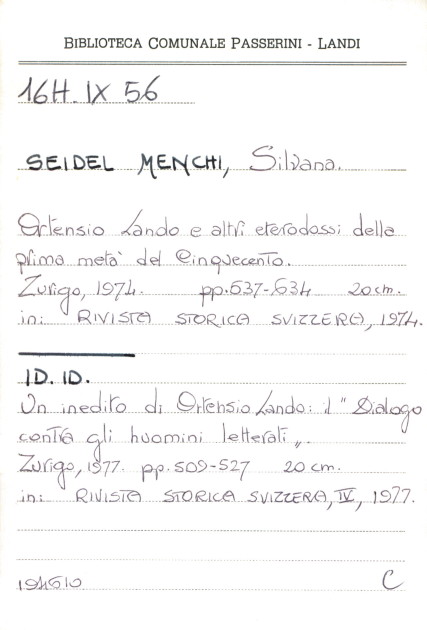 BIBLIOTECA COMUNALE PASSERINI - LANDI
16H. IX 56
SEIDEL MENCHI, Silvana.
Ortensio Lando e altri eterodossi della
prima metà del Cinquecento.
Zurigo, 1974. pp.537-634 20 cm.
in: RIVISTA STORICA SVIZZERA, 1974.
ID. ID.
Un inedito di Ortensio Lando: il "Dialogo
contra gli huomini letterati„.
Zurigo, 1977. pp. 509-527 20 cm.
in: RIVISTA STORICA SVIZZERA, IV, 1977.
C